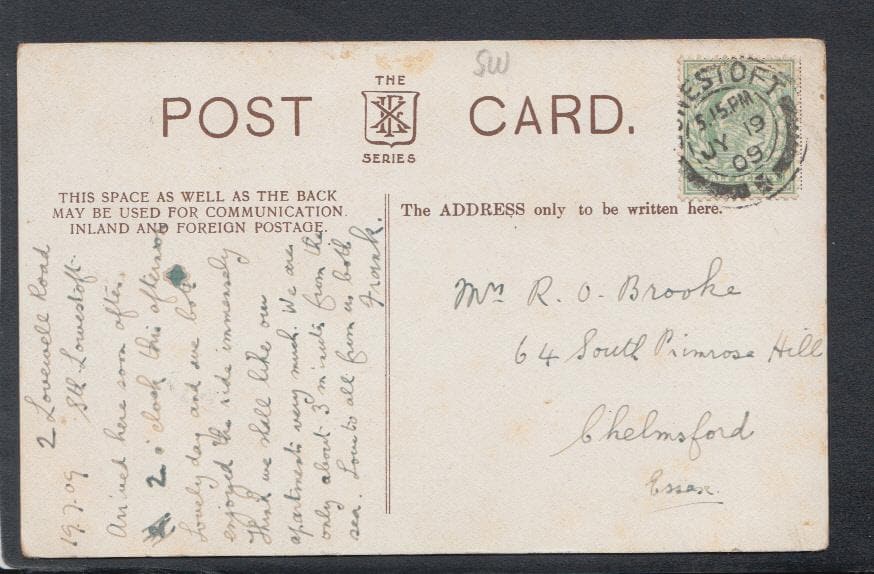 SW
POST
THE
SERIES
CARD.
LOWESTOFT
5.15.PM
JY 19
09
THIS SPACE AS WELL AS THE BACK
MAY BE USED FOR COMMUNICATION.
INLAND AND FOREIGN POSTAGE.
The ADDRESS only to be written here.
19.7.09 2 Lovewell Road
Sth Lowestoft
Arrived here soon after
2 o'clock this afternoon
Lovely day and we both
enjoyed the ride immensely
Think we shall like our
apartments very much. We are
only about 3 minutes from the
sea. Love to all from us both
Frank.
Mrs R. O. Brooke
64 South Primrose Hill
Chelmsford
Essex.